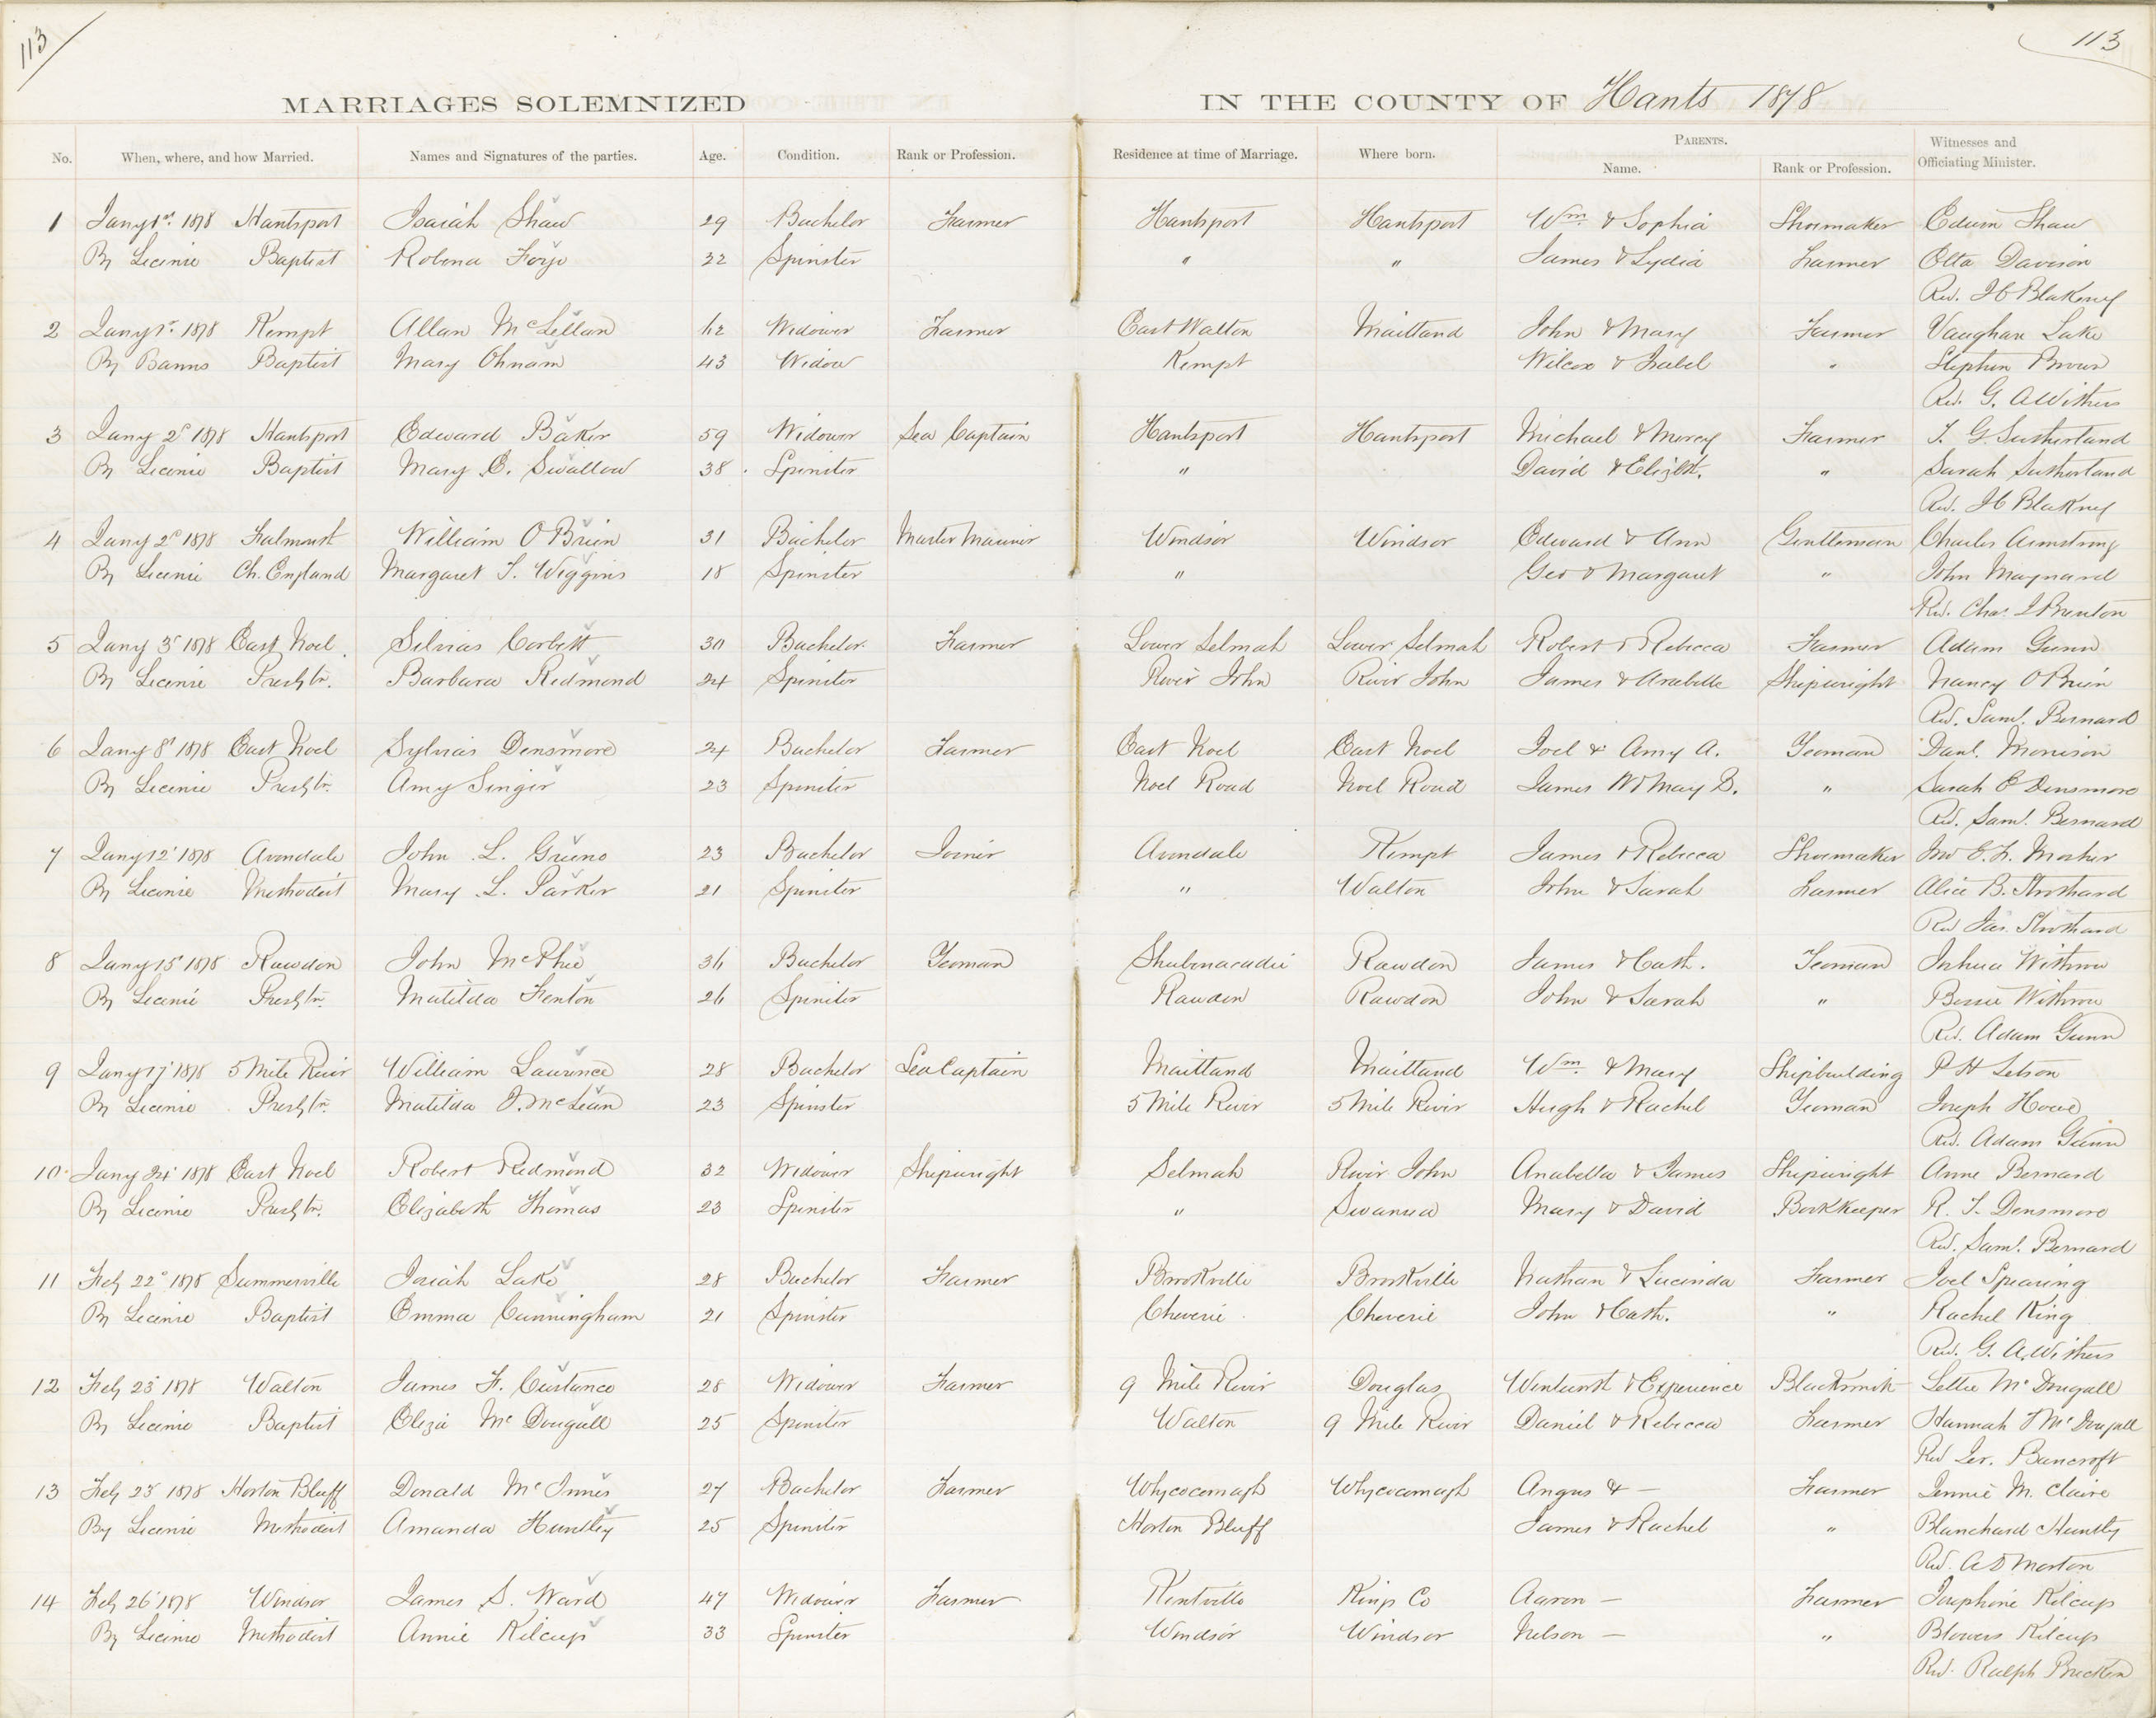 113 113
MARRIAGES SOLEMNIZED IN THE COUNTY OF Hants 1878
No. When, where, and how Married. Names and Signatures of the parties. Age. Condition. Rank or Profession. Residence at time of Marriage. Where born. PARENTS. Name. Rank or Profession. Witnesses and Officiating Minister.
1 Jany 1st 1878 Hantsport Isaiah Shaw 29 Bachelor Farmer Hantsport Hantsport Wm & Sophia Shoemaker Edwin Shaw
By Licence Baptist Robena 32 Spinster " " James & Lydia Farmer Davison
Rev. Blakeney
2 Jany 1st 1878 Kempt Allan McLellan 62 Widower Farmer East Walton Maitland John & Mary Farmer Vaughan Lake
By Banns Baptist Mary 43 Widow Kempt Wilcox & Isabel " Stephen Brown
Rev. G. A Withers
3 Jany 2d 1878 Hantsport Edward Baker 59 Widower Sea Captain Hantsport Hantsport Michael & Mercy Farmer T. G. Sutherland
By Licence Baptist Mary E. Swallow 38 Spinster " David & Elizbt. " Sarah Sutherland
Rev. Blakney
4 Jany 2d 1878 Falmouth William O'Brien 31 Bachelor Master Mariner Windsor Windsor Edward & Ann Gentleman Charles Armstrong
By Licence Ch. England Margaret S. Wiggins 18 Spinster " Geo & Margaret " John Maynard
Rev. Chas.
5 Jany 3d 1878 East Noel Silvias Corbett 30 Bachelor Farmer Lower Selmah Lower Selmah Robert & Rebecca Farmer Adam Gunn
By Licence Presbtn. Barbara Redmond 24 Spinster River John River John James & Anabella Shipwright Nancy O'Brien
Rev. Saml. Bernard
6 Jany 8t 1878 East Noel Sylvias Densmore 24 Bachelor Farmer East Noel East Noel Joel & Amy A. Yeoman Danl. Morrison
By Licence Presbtn. Amy Singer 23 Spinster Noel Road Noel Road James W & Mary D. " Sarah E Densmore
Rev. Saml. Bernard
7 Jany 12t 1878 Avondale John L. Greeno 23 Bachelor Joiner Avondale Kempt James & Rebecca Shoemaker Mosher
By Licence Methodist Mary L. Parker 21 Spinster " Walton John & Sarah Farmer Alice B. Strothard
Rev Jas. Strothard
8 Jany 15t 1878 Rawdon John McPhee 36 Bachelor Yeoman Shubenacadie Rawdon James & Cath. Yeoman Joshua Withrow
By Licence Presbtn. Matilda Fenton 26 Spinster Rawdon Rawdon John & Sarah " Bessie Withrow
Rev. Adam Gunn
9 Jany 17t 1878 5 Mile River William Lawrence 28 Bachelor Sea Captain Maitland Maitland Wm & Mary Shipbuilding P H Letson
By Licence Presbtn. Matilda J. McLean 23 Spinster 5 Mile River 5 Mile River Hugh & Rachel Yeoman Joseph Howe
Rev. Adam Gunn
10 Jany 24t 1878 East Noel Robert Redmond 32 Widower Shipwright Selmah River John Anabella & James Shipwright Anne Bernard
By Licence Presbtn. Elizabeth Thomas 23 Spinster " Swansea Mary & David Bookkeeper R. T. Densmore
Rev. Saml. Bernard
11 Feb 22d 1878 Summerville Isaiah Lake 28 Bachelor Farmer Brookville Brookville Nathan & Lucinda Farmer Joel Spearing
By Licence Baptist Emma Cunningham 21 Spinster Cheverie Cheverie John & Cath. " Rachel King
Rev. G. A. Withers
12 Feb 23d 1878 Walton James F. Custance 28 Widower Farmer 9 Mile River Douglas & Experience Blacksmith Lettie McDougall
By Licence Baptist Eliza McDougall 25 Spinster Walton 9 Mile River Daniel & Rebecca Farmer Hannah J McDougall
Rev Bancroft
13 Feb 23d 1878 Horton Bluff Donald McInnes 27 Bachelor Farmer Whycocomagh Whycocomagh Angus & — Farmer Jennie M. Claire
By Licence Methodist Amanda Huntley 25 Spinster Horton Bluff James & Rachel " Blanchard Huntley
Rev. A D Morton
14 Feb 26t 1878 Windsor James S. Ward 47 Widower Farmer Kentville Kings Co Aaron — Farmer Josephine Kilcup
By Licence Methodist Annie Kilcup 33 Spinster Windsor Windsor Nelson — " Blowers Kilcup
Rev. Ralph Brecken